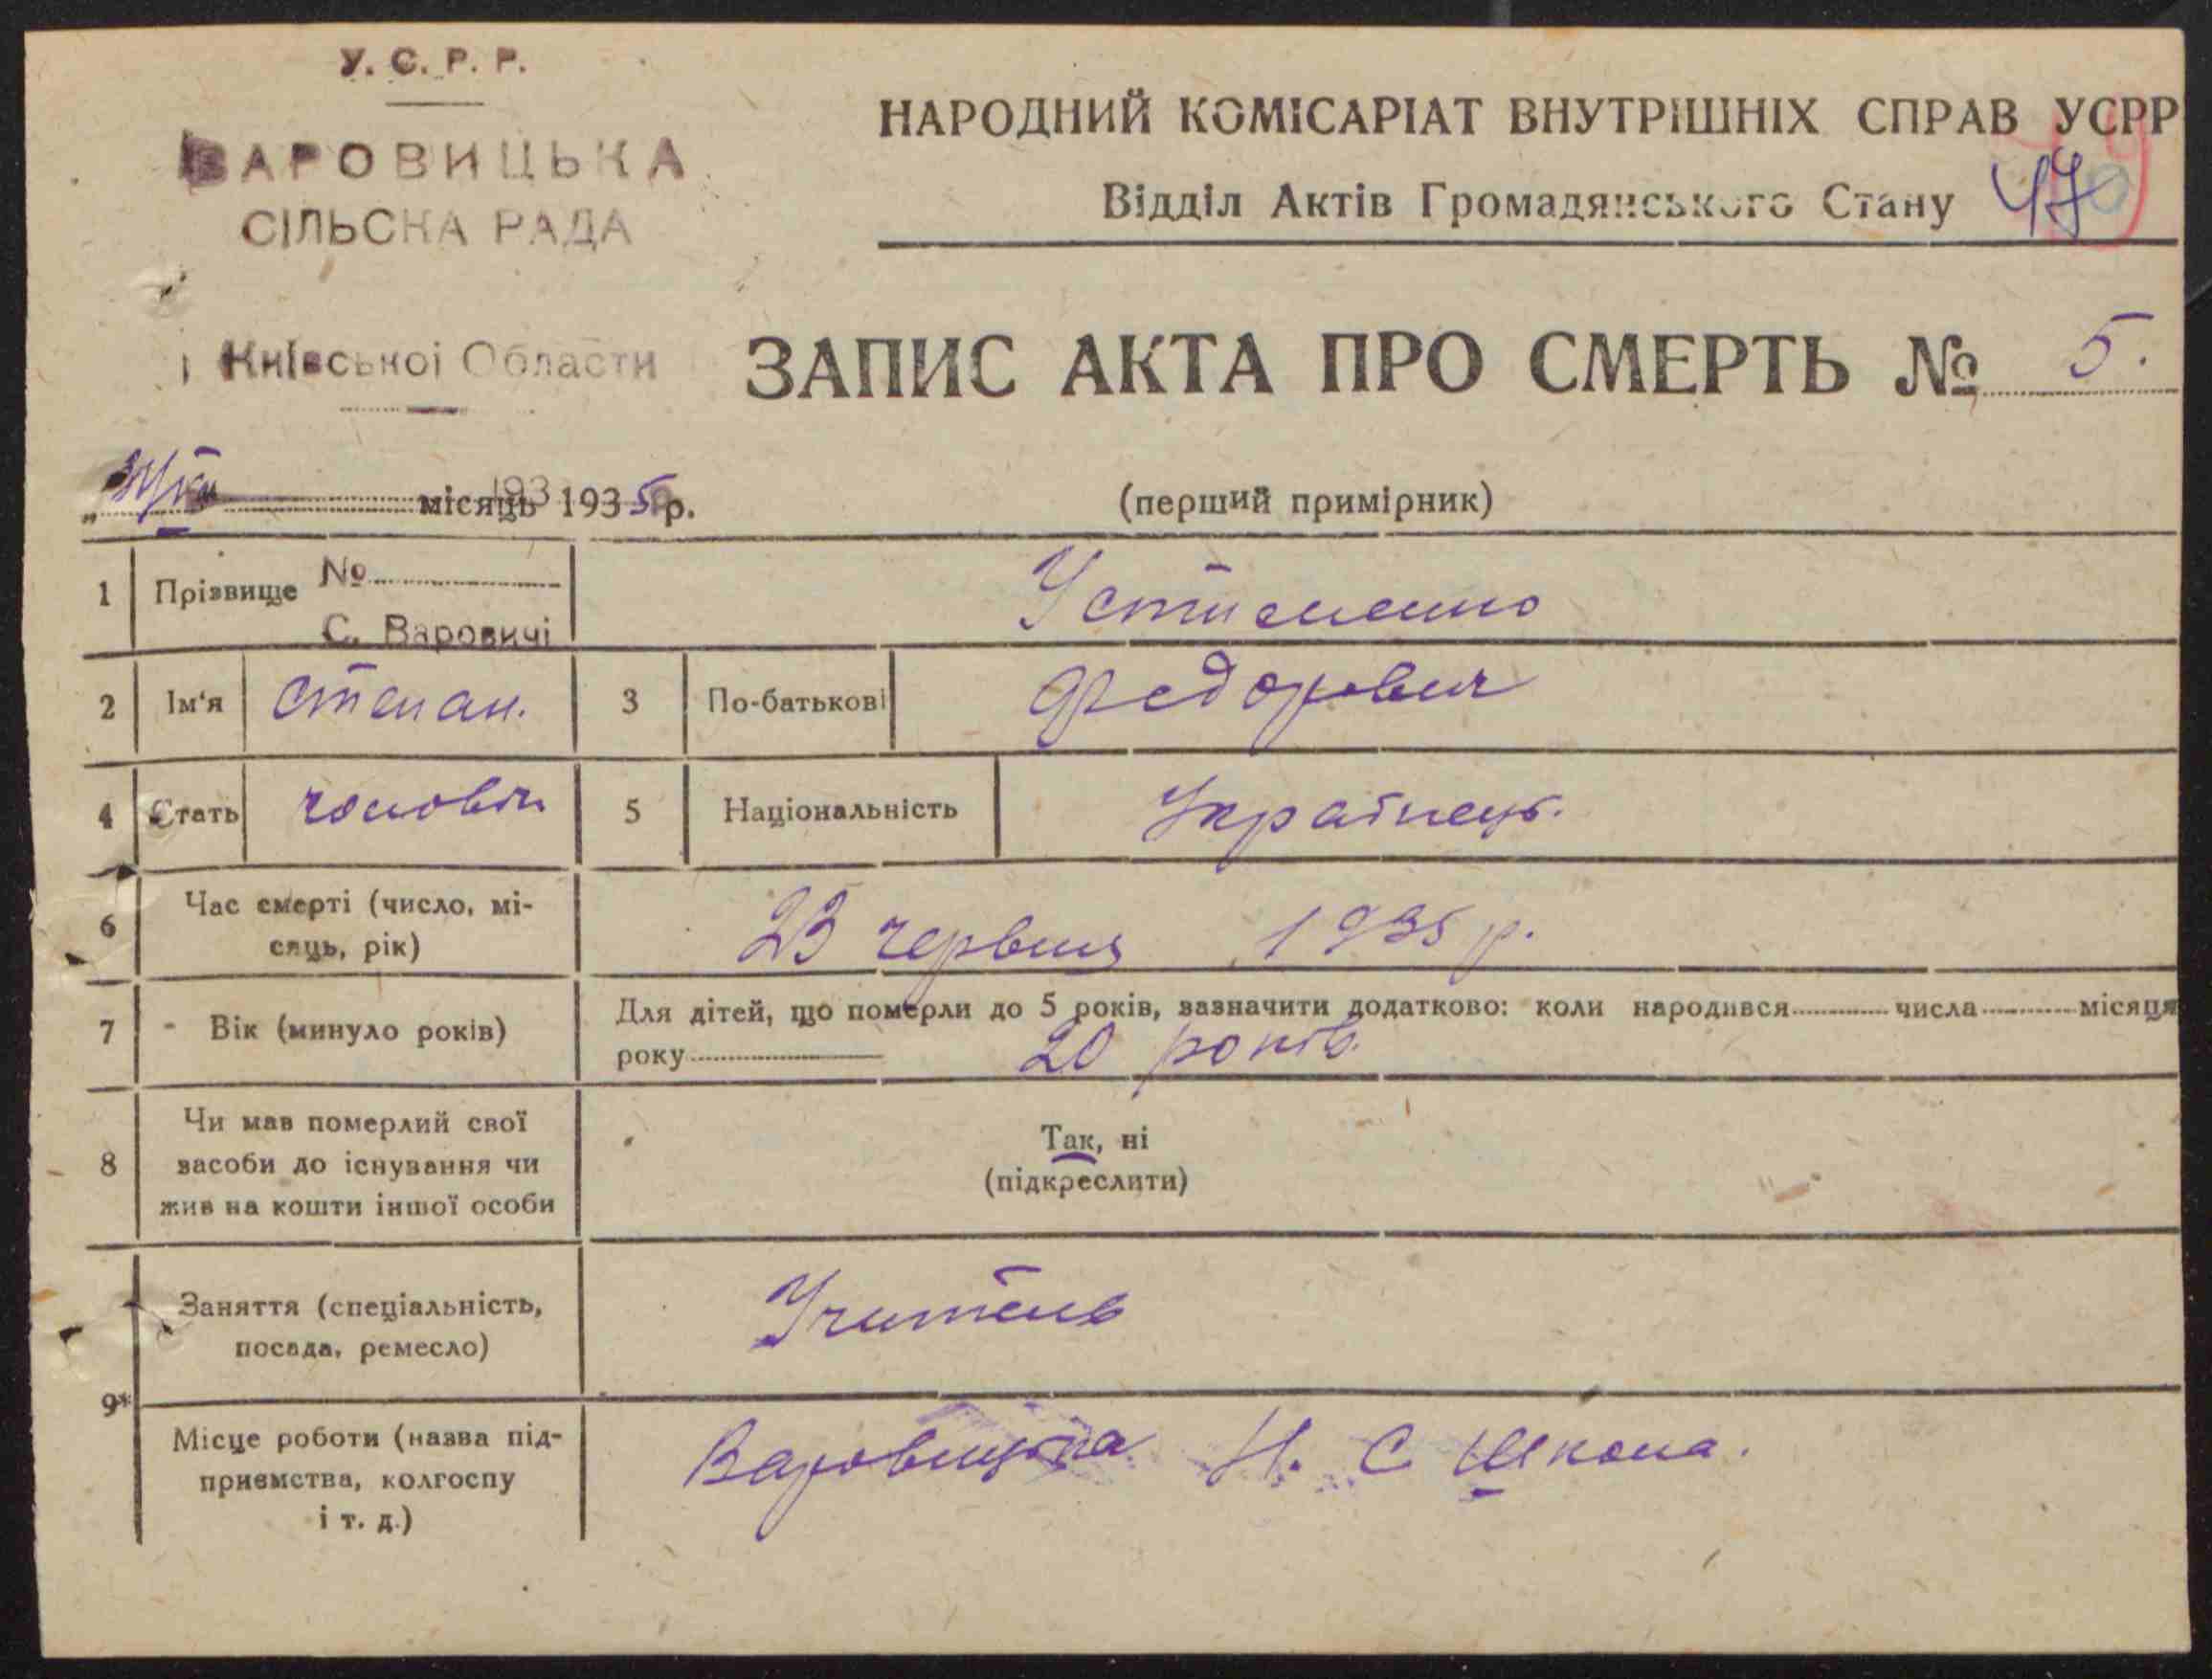 У. С. Р. Р.
ВАРОВИЦЬКА
СІЛЬСКА РАДА
Київської Области
НАРОДНИЙ КОМІСАРІАТ ВНУТРІШНІХ СПРАВ УСРР
Відділ Актів Громадянського Стану 47
ЗАПИС АКТА ПРО СМЕРТЬ № 5.
місяць 193 1935 р.
(перший примірник)
1 Прізвище № Устименко
С. Варовичі
2 Ім'я Степан. 3 По-батькові Федорович
4 Стать чоловік 5 Національність Українець.
6 Час смерті (число, мі-
сяць, рік) 23 червня 1935 р.
7 Вік (минуло років) Для дітей, що померли до 5 років, зазначити додатково: коли народився числа місяця
року 20 років.
8 Чи мав померлий свої
засоби до існування чи
жив на кошти іншої особи
Так, ні
(підкреслити)
9* Заняття (спеціальність,
посада, ремесло) Учитель
Місце роботи (назва під-
приємства, колгоспу
і т. д.) Варовицька Н. С. Школа.